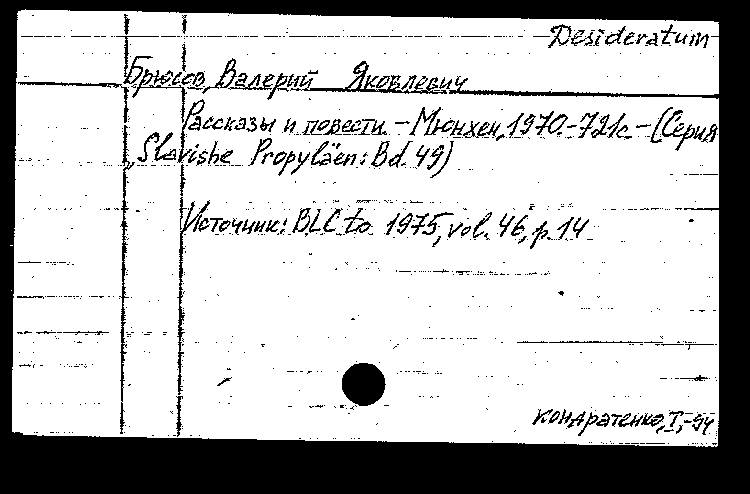 Desideratum
Брюсов, Валерий Яковлевич
Рассказы и повести. – Мюнхен, 1970. – 721с. – (Серия
„Slavishe Propyläen: Bd. 49)
Источник: BLC to 1975, vol. 46, p. 14
Кондратенко, I, -94